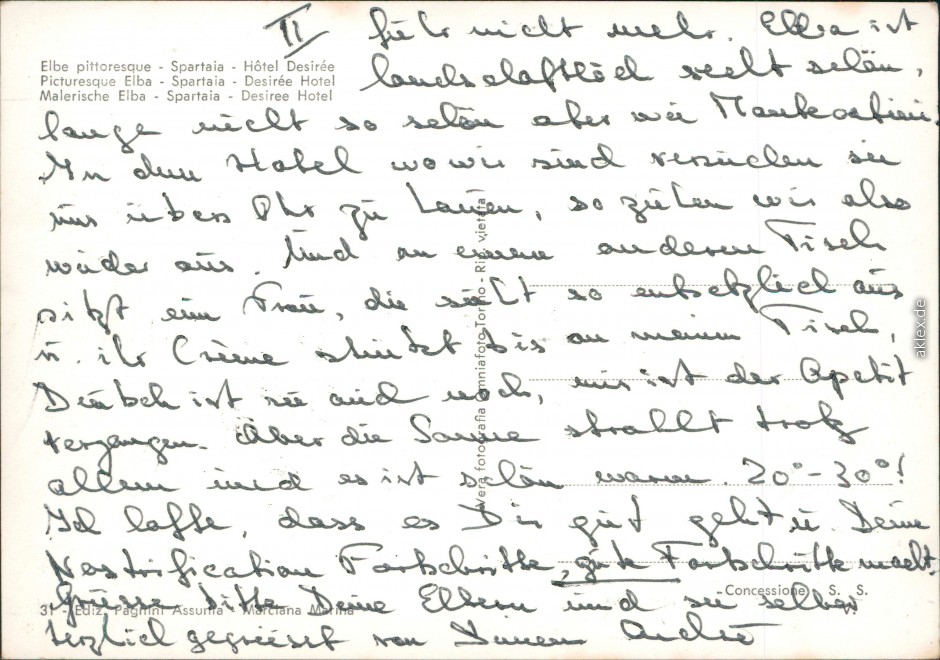 II
für nicht mehr. Elba ist
Elbe pittoresque - Spartaia - Hôtel Desirée
Picturesque Elba - Spartaia - Desirée Hotel
Malerische Elba - Spartaia - Desiree Hotel
landschaftlich recht schön,
lange nicht so schön aber wie
In dem Hotel wo wir sind versuchen sie
uns übers Ohr zu hauen, so ziehen wir also
wieder aus. Und an einem anderen Tisch
sitzt eine Frau, die sieht so entsetzlich aus
u. ihr Crème stinkt bis an meinen Tisch,
Deutsch ist sie auch noch, mir ist der Apetit
vergangen. Aber die Sonne strahlt trotz
allem und es ist schön warm. 20°-30°!
Ich hoffe, dass es Dir gut geht u. Deine
Nostrification Fortschritte, gute Fortschritte macht.
Grüsse bitte Deine Eltern und sei selber
herzlich gegrüsst von Deinem
Vera fotografia Omniafoto Torino - Rip. vietata
31 - Ediz. Pagnini Assunta - Marciana Marina
Concessione S. S.
aklex.de